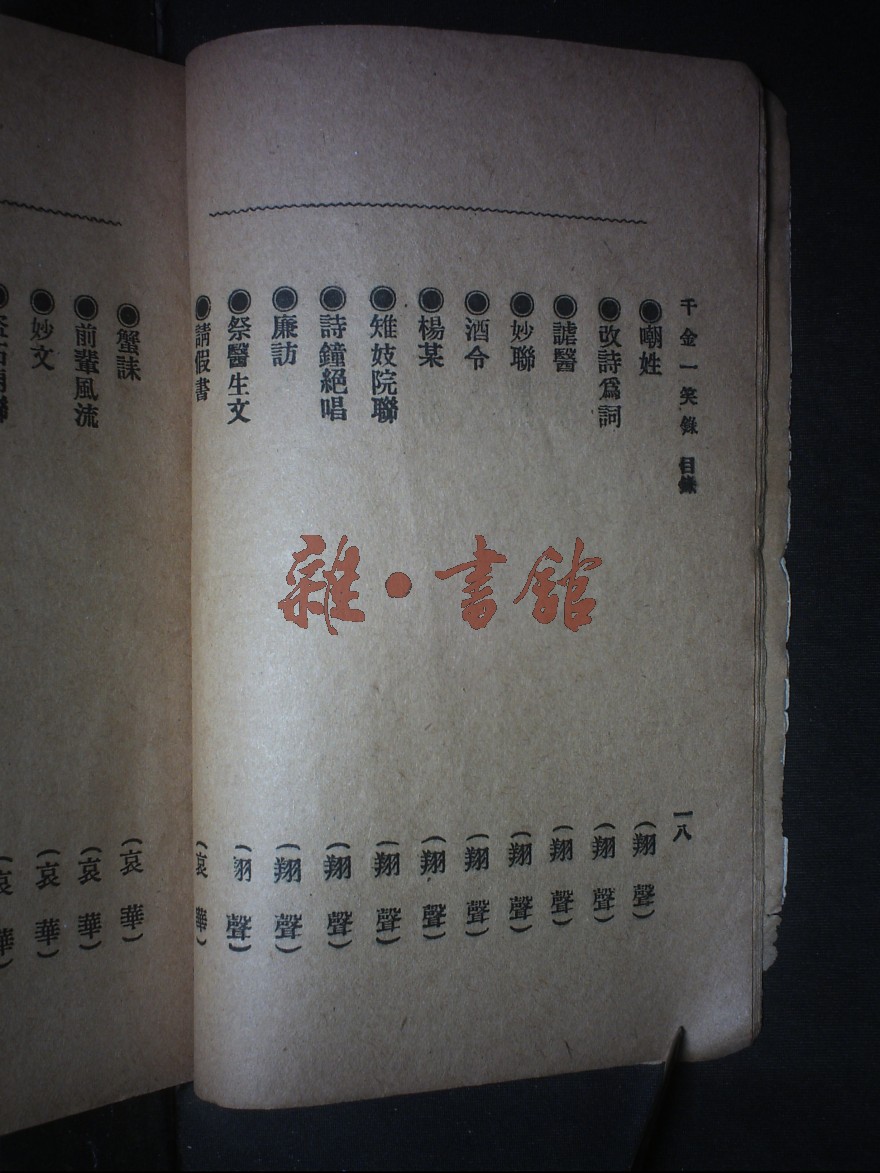 千金一笑錄 目錄
一八
◉嘲姓 (翔聲)
◉改詩爲詞 (翔聲)
◉謔醫 (翔聲)
◉妙聯 (翔聲)
◉酒令 (翔聲)
◉楊某 (翔聲)
◉雉妓院聯 (翔聲)
◉詩鐘絕唱 (翔聲)
◉廉訪 (翔聲)
◉祭醫生文 (翔聲)
◉請假書 (哀華)
◉蟹誄 (哀華)
◉前輩風流 (哀華)
◉妙文 (哀華)
(哀華)
雜·書館